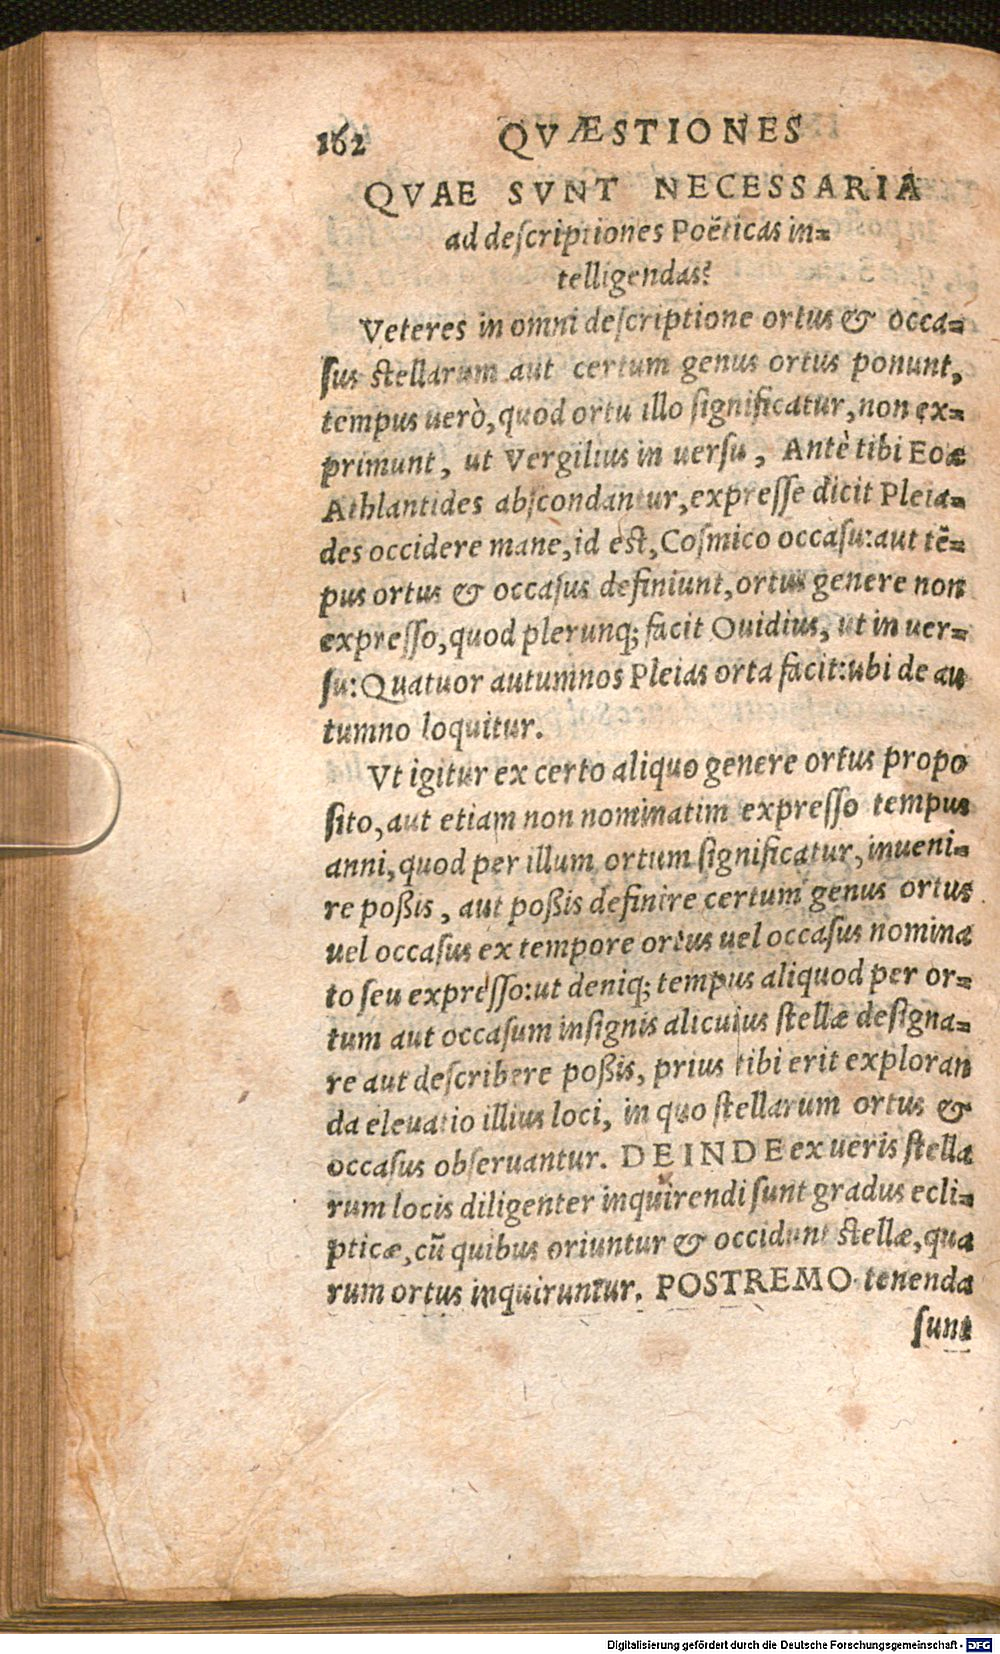 162 QVÆSTIONES
QVAE SVNT NECESSARIA
ad descriptiones Poëticas in=
telligendas?
Veteres in omni descriptione ortus & occa=
sus stellarum aut certum genus ortus ponunt,
tempus uerò, quod ortu illo significatur, non ex=
primunt, ut Vergilius in uersu, Antè tibi Eoæ
Athlantides abscondantur, expresse dicit Pleia=
des occidere mane, id est, Cosmico occasu: aut tē=
pus ortus & occasus definiunt, ortus genere non
expresso, quod plerunq; facit Ouidius, ut in uer=
su: Quatuor autumnos Pleias orta facit: ubi de au
tumno loquitur.
Vt igitur ex certo aliquo genere ortus propo
sito, aut etiam non nominatim expresso tempus
anni, quod per illum ortum significatur, inueni=
re poßis, aut poßis definire certum genus ortus
uel occasus ex tempore ortus uel occasus nomina
to seu expresso: ut deniq; tempus aliquod per or=
tum aut occasum insignis alicuius stellæ designa=
re aut describere poßis, prius tibi erit exploran
da eleuatio illius loci, in quo stellarum ortus &
occasus obseruantur. DEINDE ex ueris stella
rum locis diligenter inquirendi sunt gradus ecli=
pticæ, cū quibus oriuntur & occidunt stellæ, qua
rum ortus inquiruntur. POSTREMO tenenda
sunt
Digitalisierung gefördert durch die Deutsche Forschungsgemeinschaft - DFG